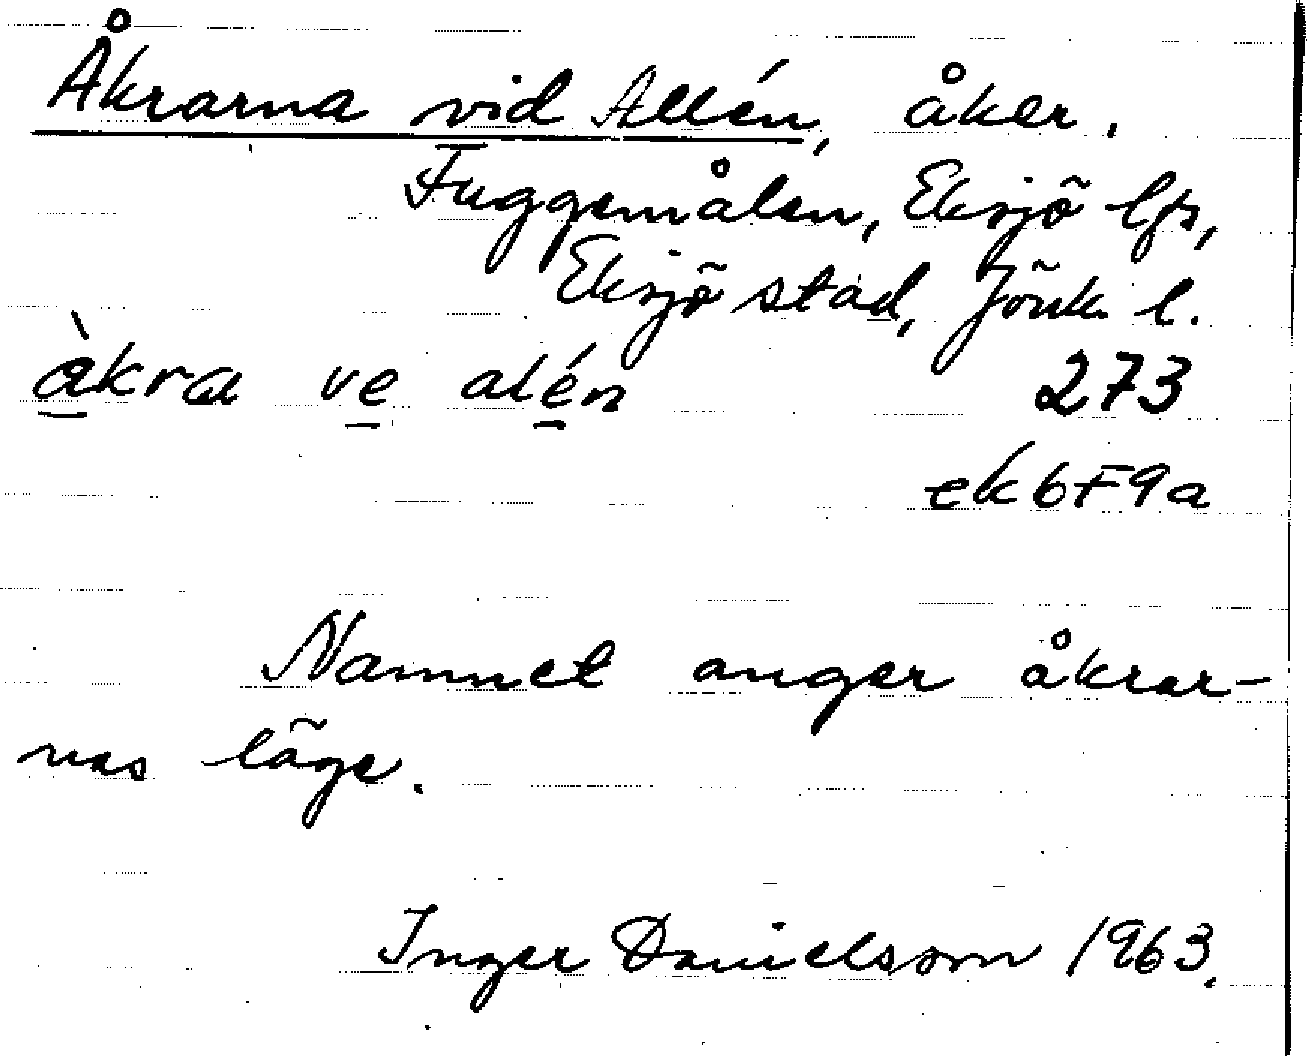 Åkrarna vid Allén, åker.
Fuggemålen, Eksjö lfs,
Eksjö stad, Jönk. l.
àkra ve alén 273
ek 6F9a
Namnet anger åkrar-
nas läge.
Inger Danielsson 1963.